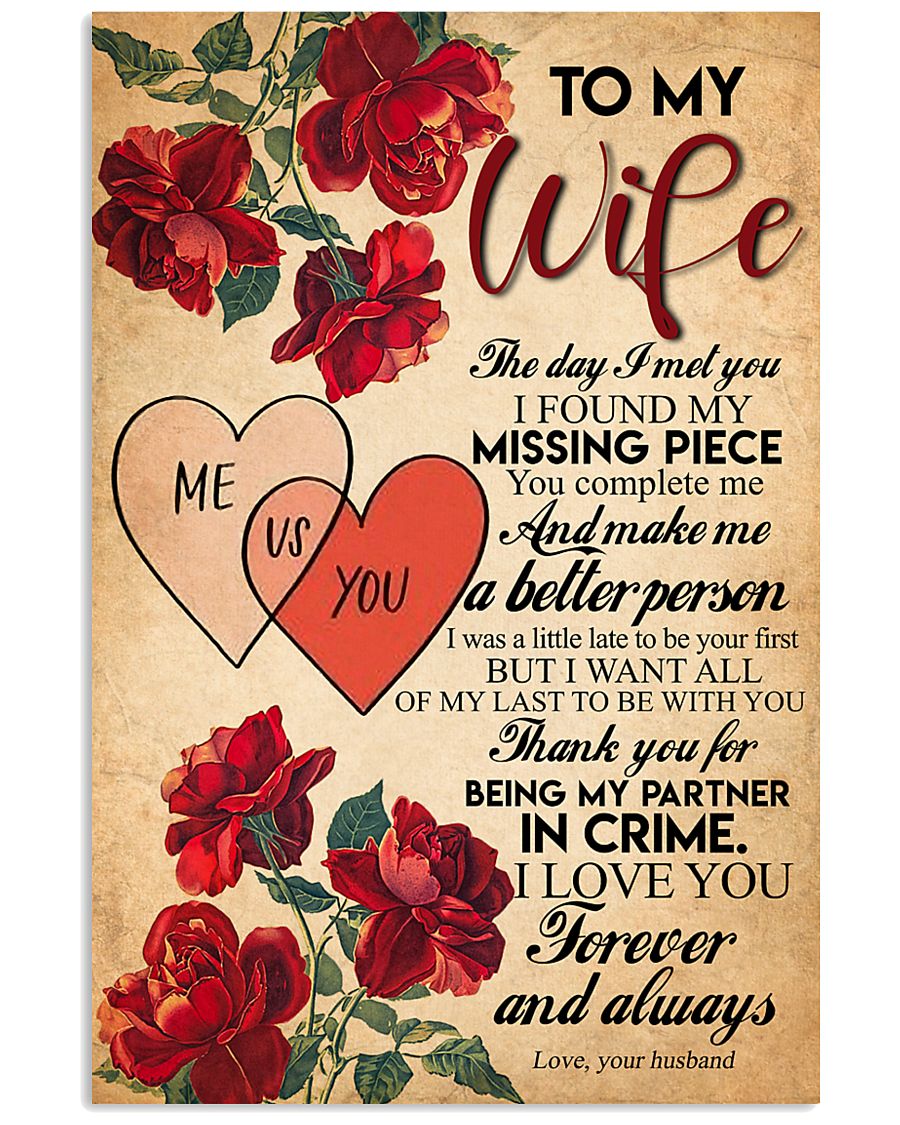 TO MY
Wife
The day I met you
I FOUND MY
MISSING PIECE
You complete me
And make me
a better person
I was a little late to be your first
BUT I WANT ALL
OF MY LAST TO BE WITH YOU
Thank you for
BEING MY PARTNER
IN CRIME.
I LOVE YOU
Forever
and always
Love, your husband
ME
US
YOU